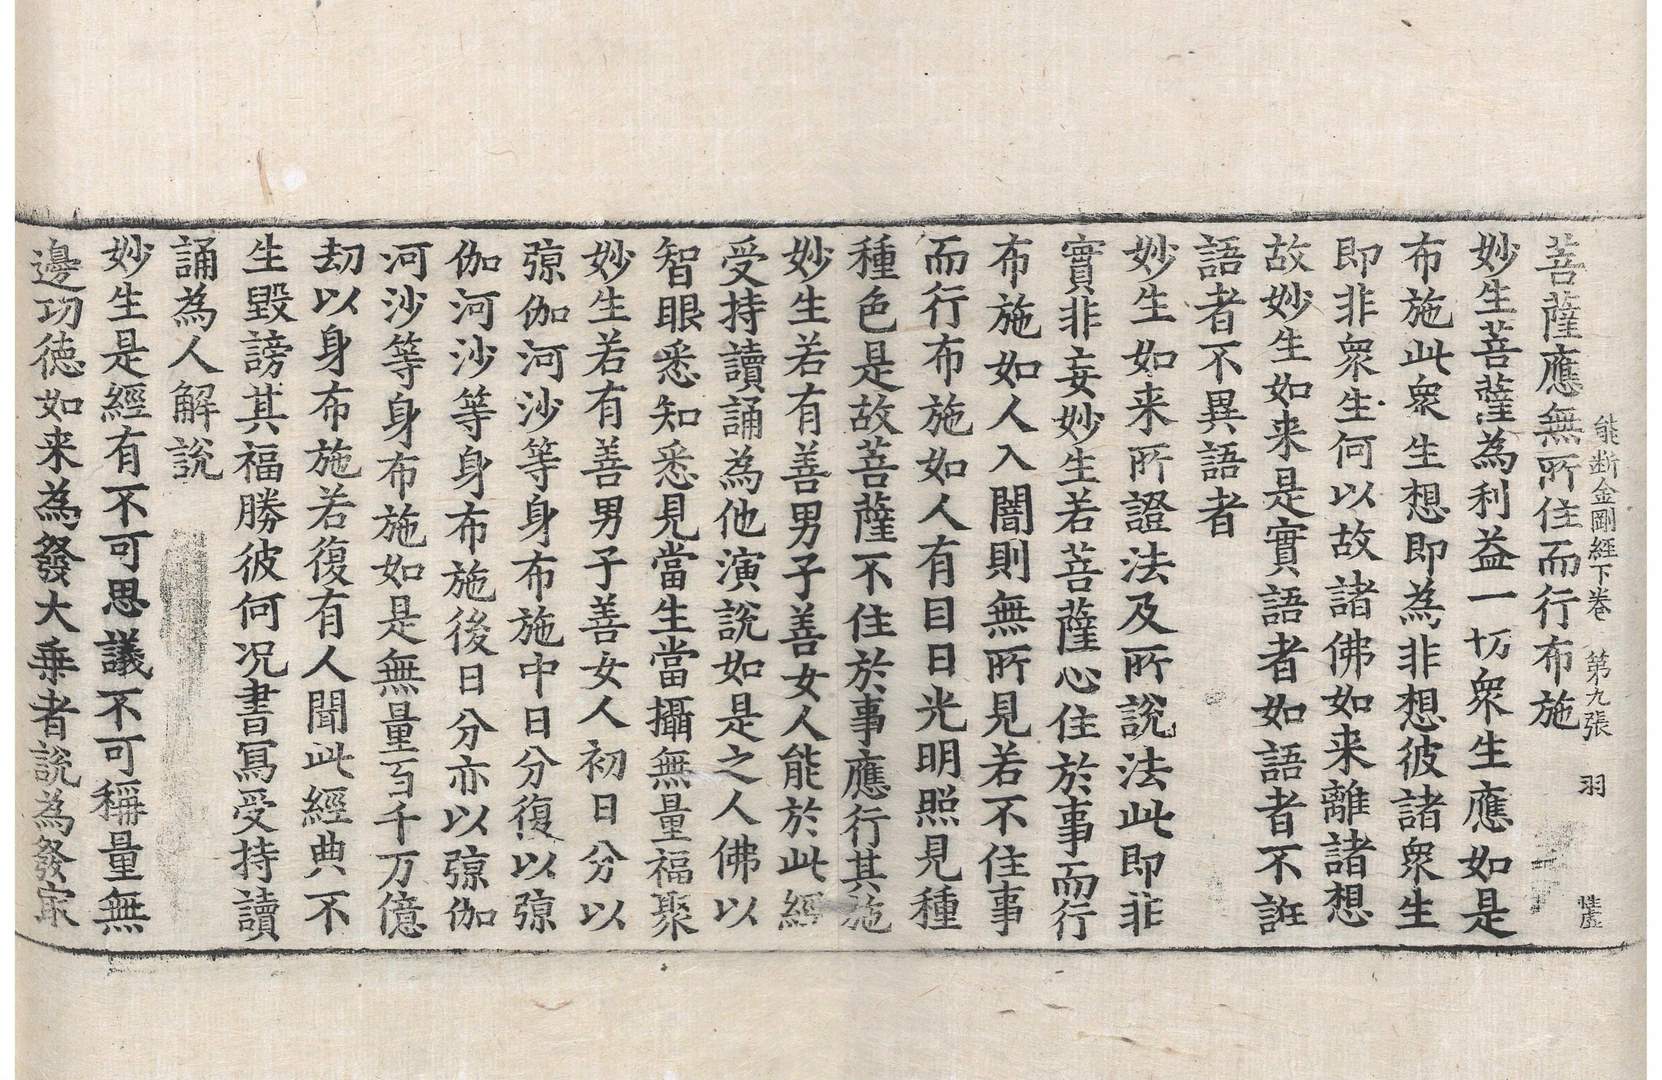 能断金剛經下卷 第九張 羽
菩薩應無所住而行布施
妙生菩薩為利益一切衆生應如是
布施此衆生想即為非想彼諸衆生
即非衆生何以故諸佛如来離諸想
故妙生如来是實語者如語者不誑
語者不異語者
妙生如来所證法及所說法此即非
實非妄妙生若菩薩心住於事而行
布施如人入闇則無所見若不住事
而行布施如人有目日光明照見種
種色是故菩薩不住於事應行其施
妙生若有善男子善女人能於此經
受持讀誦為他演說如是之人佛以
智眼悉知悉見當生當攝無量福聚
妙生若有善男子善女人初日分以
弶伽河沙等身布施中日分復以弶
伽河沙等身布施後日分亦以弶伽
河沙等身布施如是無量百千万億
劫以身布施若復有人聞此經典不
生毀謗其福勝彼何况書寫受持讀
誦為人解說
妙生是經有不可思議不可稱量無
邊功徳如来為發大乗者說為發㝡